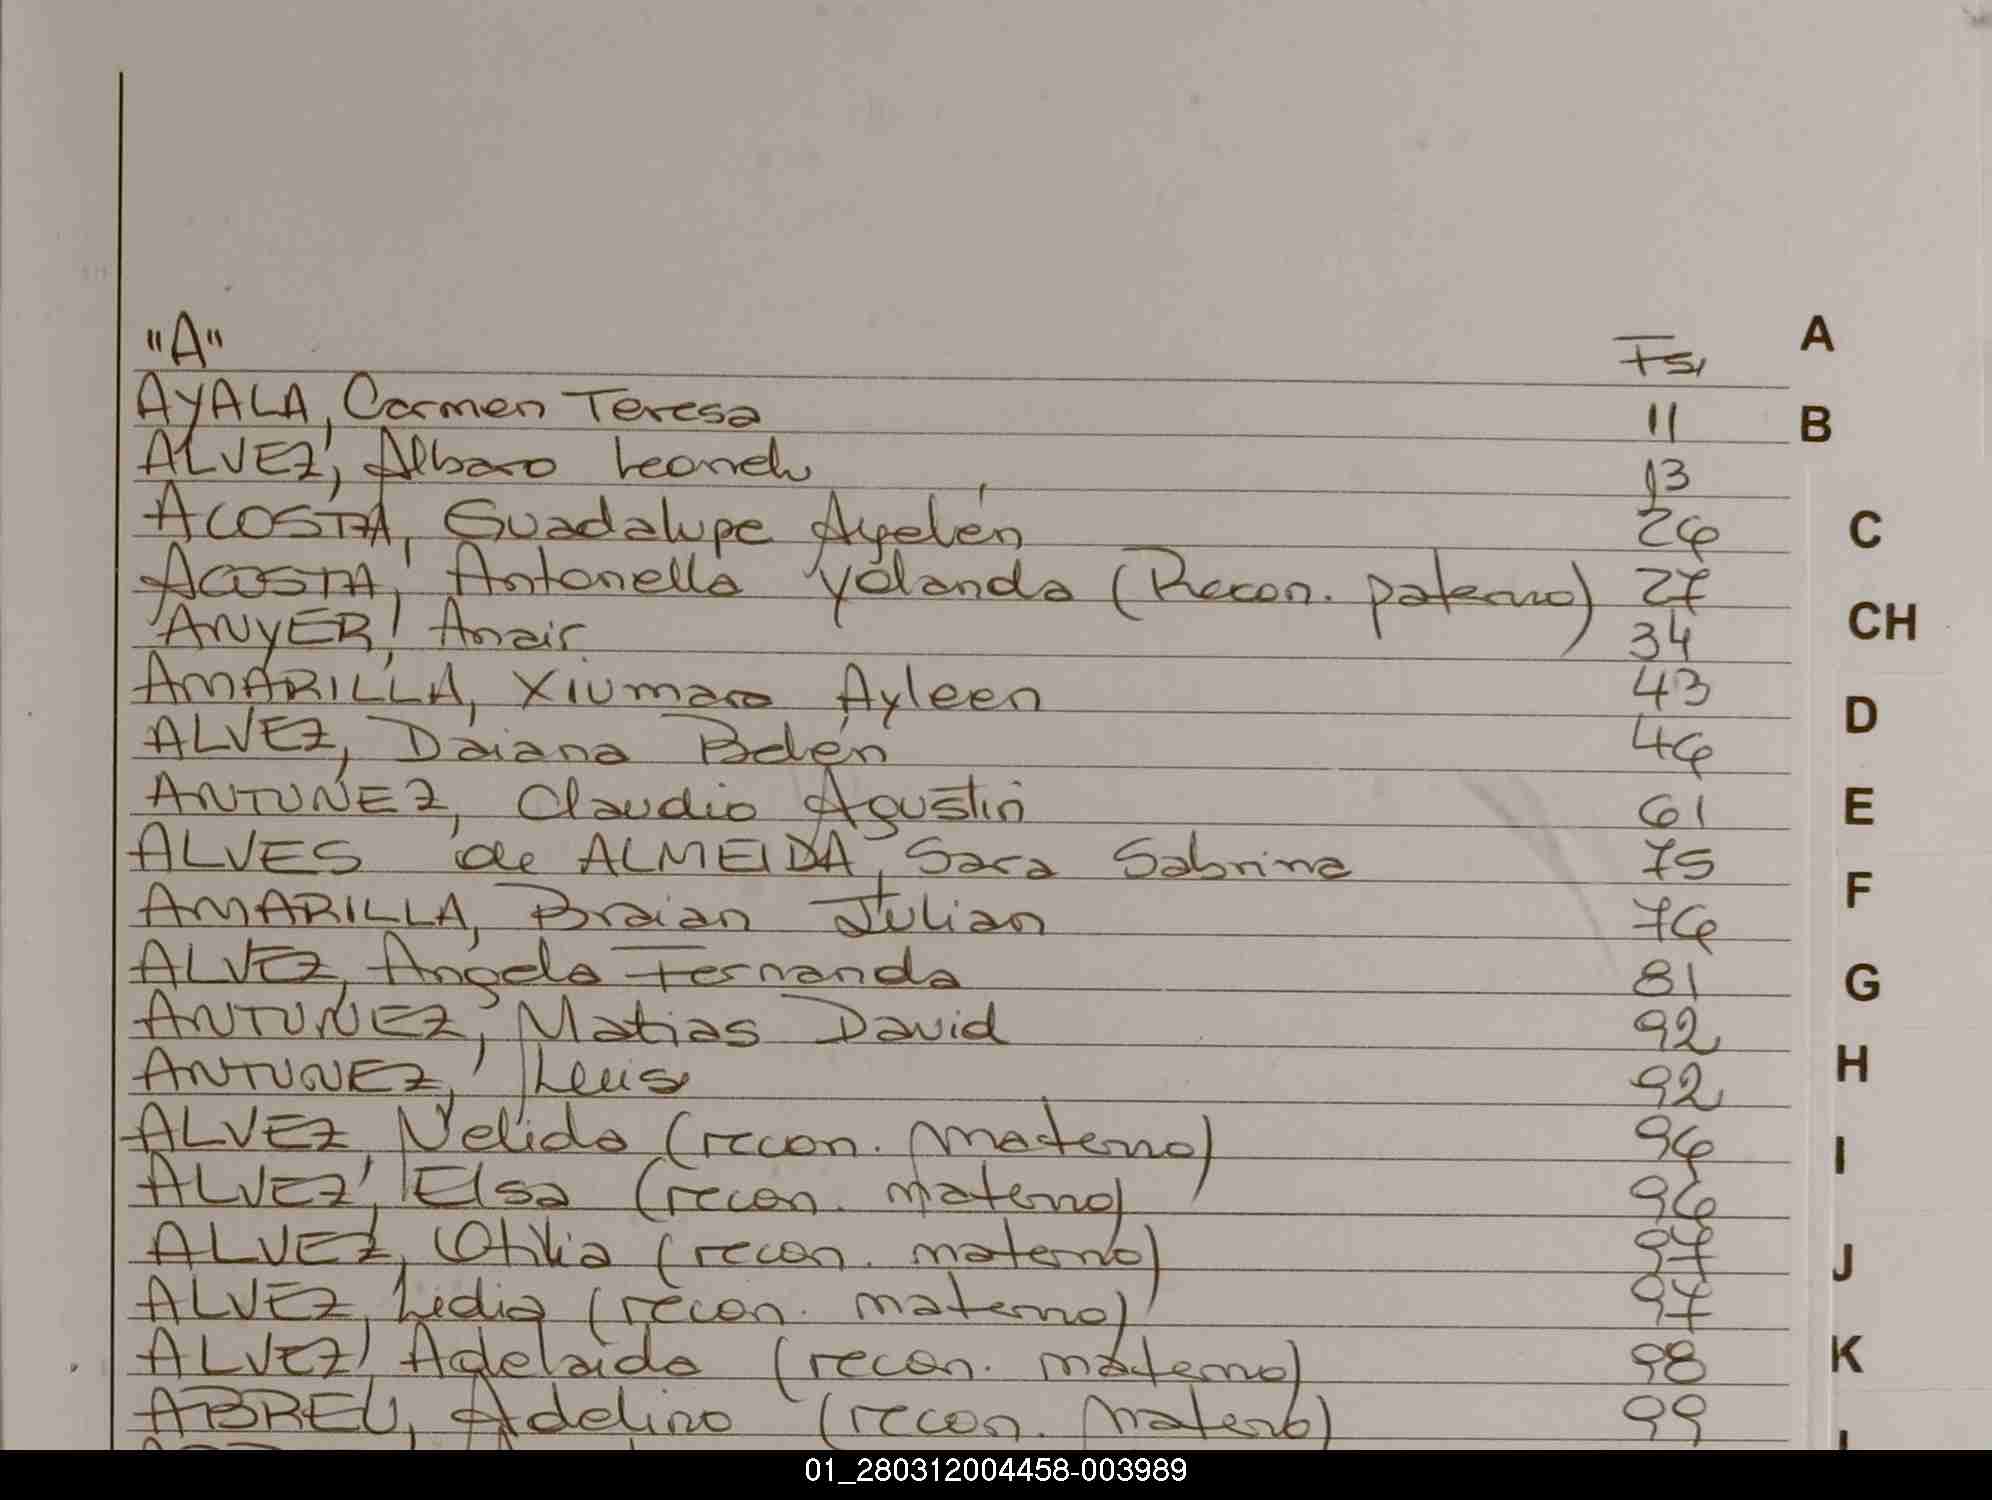 "A" Fs, A
AYALA, Carmen Teresa 11 B
ALVEZ, Albaro 13
ACOSTA, Guadalupe Ayelén 26 C
ACOSTA, Antonella Yolanda (Recon. paterno) 27
ANYER, Anair 34 CH
AMARILLA, Xiumara Ayleen 43
ALVEZ, Daiana Belén 46 D
ANTUNEZ, Claudio Agustin 61 E
ALVES de ALMEIDA, Sara Sabrina 75
AMARILLA, Braian Julian 76 F
ALVEZ, Angela Fernanda 81 G
ANTUNEZ, Matias David 92
ANTUNEZ, Luis 92 H
ALVEZ, Nelida (recon. materno) 96 I
ALVEZ, Elsa (recon. materno) 96
ALVEZ, Otilia (recon. materno) 97 J
ALVEZ, Lidia (recon. materno) 97
ALVEZ, Adelaida (recon. materno) 98 K
ABREU, Adelino (recon. materno) 99
01_280312004458-003989